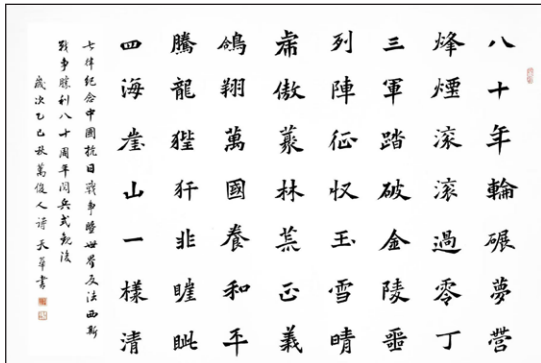 八十年輪碾夢營
烽煙滾滾過零丁
三軍踏破金陵噩
列陣征収玉雪晴
虎傲叢林正義
鴿翔萬國養和平
騰龍狴犴非睚眦
四海崖山一樣清
七律紀念中國抗日戰爭暨世界反法西斯
戰爭勝利八十周年閱兵式觀後
歲次乙巳秋萬俊人詩天華書